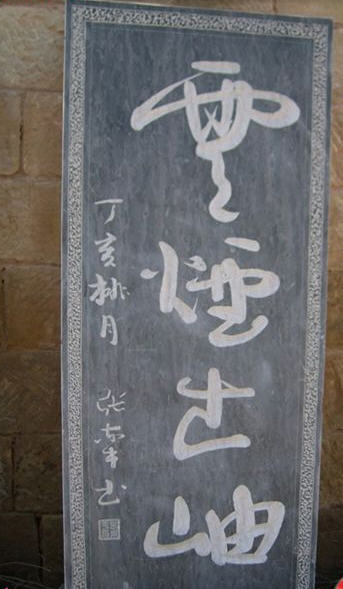 雲煙出岫
丁亥桃月 张荣书